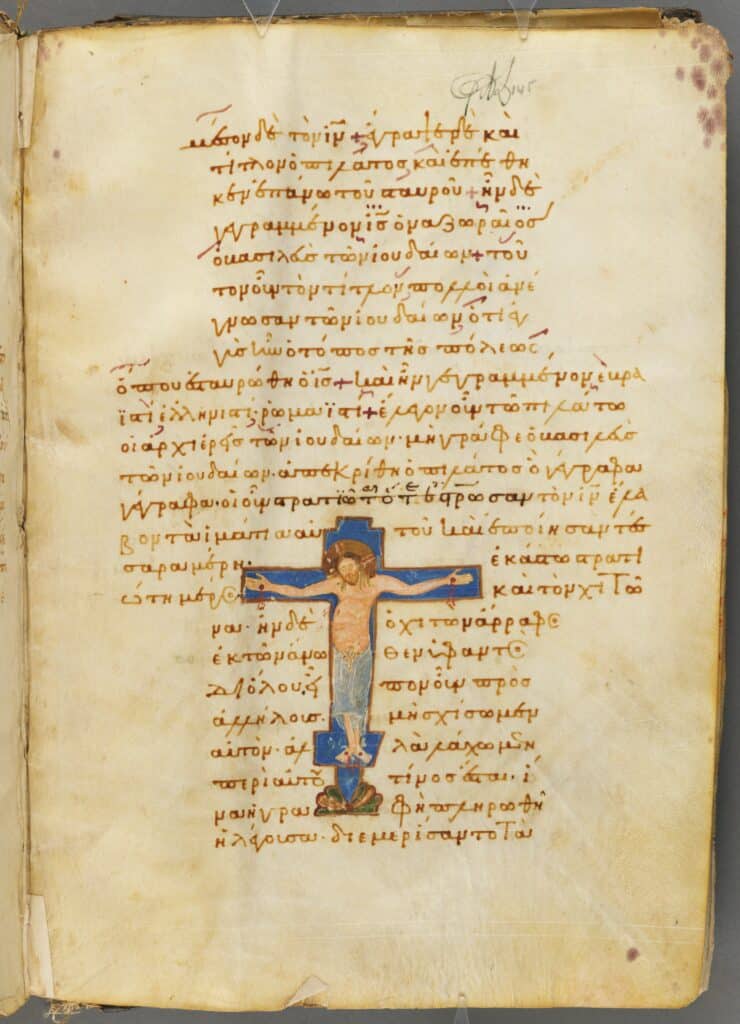 μέσον δὲ τὸν ἰν + ἔγραψε δὲ καὶ
τίτλον ὁ πιλάτος καὶ ἐπέθη
κεν ἐπάνω τοῦ σταυροῦ + ἦν δὲ
γεγραμμένον ἰς ὁ ναζωραῖος
ὁ βασιλεὺς τῶν ἰουδαίων + τοῦ
τον οὖν τὸν τίτλον πολλοὶ ἀνέ
γνωσαν τῶν ἰουδαίων ὅτι ἐγ
γὺς ἦν ὁ τόπος τῆς πόλεως
ὅπου ἐσταυρώθη ὁ ἰς + καὶ ἦν γεγραμμένον ἑβρα
ϊστὶ ἑλληνιστὶ· ῥωμαϊστὶ + ἔλεγον οὖν τῶ πιλάτω
οἱ ἀρχιερεῖς τῶν ἰουδαίων· μὴ γράφε ὁ βασιλεὺς
τῶν ἰουδαίων· ἀπεκρίθη ὁ πιλάτος ὃ γέγραφα
γέγραφα· οἱ οὖν στρατιῶται ὅτε ἐσταύρωσαν τὸν ἰν ἔλα
βον τὰ ἱμάτια αὐ τοῦ καὶ ἐποίησαν τέσ
σαρα μέρη· ἑκάστω στρατι
ώτη μέρος καὶ τὸν χιτῶ
να· ἦν δὲ ὁ χιτὼν ἄρραφος
ἐκ τῶν ἄνω θεν ὑφαντὸς
δι ὅλου· εἶ πον οὖν πρὸς
ἀλλήλους· μὴ σχίσωμεν
αὐτὸν· ἀλ λὰ λάχωμεν
περὶ αὐτοῦ τίνος ἔσται· ἵ
να ἡ γρα φὴ πληρωθῆ
ἡ λέγουσα· διεμερίσαντο τὰ